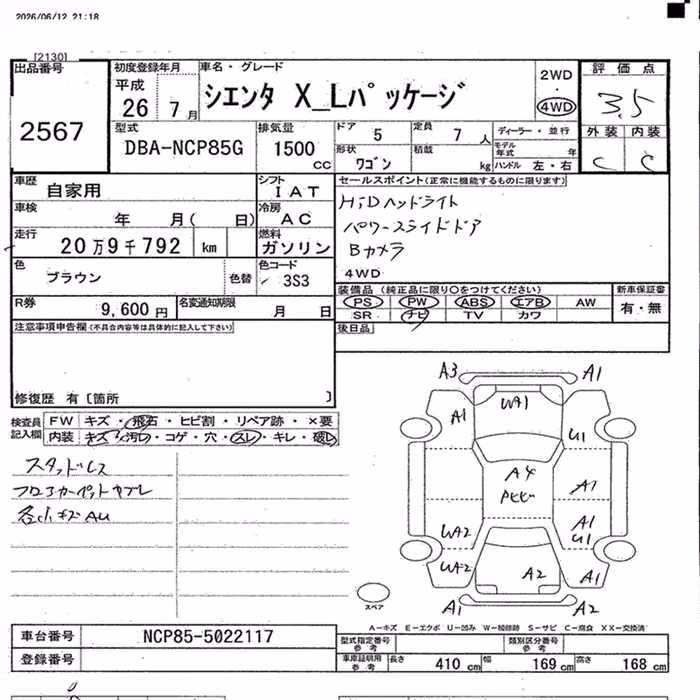 2026/06/12 21:18
[2130]
出品番号
2567
初度登録年月
平成
26 7 月
車名・グレード
シエンタ X_Lパッケージ
2WD
・
4WD
評価点
3.5
外装 内装
C C
型式
DBA-NCP85G
排気量
1500
cc
ドア 5
定員 7 人
形状
ワゴン
積載
kg
ディーラー・並行
モデル年式 年
ハンドル 左・右
車歴
自家用
シフト
I A T
車検
年 月( 日)
冷房
A C
走行
20 万 9 千 792 km
燃料
ガソリン
色
ブラウン
色替
色コード
3S3
R券
9,600 円
名変通知期限
月 日
セールスポイント(正常に機能するものに限ります)
HiDヘッドライト
パワースライドドア
Bカメラ
4WD
装備品 (純正品に限り○をつけてください)
PS PW ABS エアB AW
SR ナビ TV カワ
新車保証書
有・無
後日品
注意事項申告欄(不具合内容等は具体的に記入して下さい)
修復歴 有〔箇所 〕
検査員
記入欄
FW キズ・飛石・ヒビ割・リペア跡・×要
内装 キズ・汚レ・コゲ・穴・スレ・キレ・破レ
スタッドレス
フロアカーペットヤブレ
各小キズAU
A3 A1
WA1
A1 U1
A4
A1
A1
U1
WA2
WA2
A2
A1
A1 A2
スペア
A－キズ E－エクボ U－凹み W－補修跡 S－サビ C－腐食 XX－交換済
車台番号
NCP85-5022117
登録番号
型式指定番号
参考
類別区分番号
参考
車庫証明用
参考
長さ 410 cm 幅 169 cm 高さ 168 cm